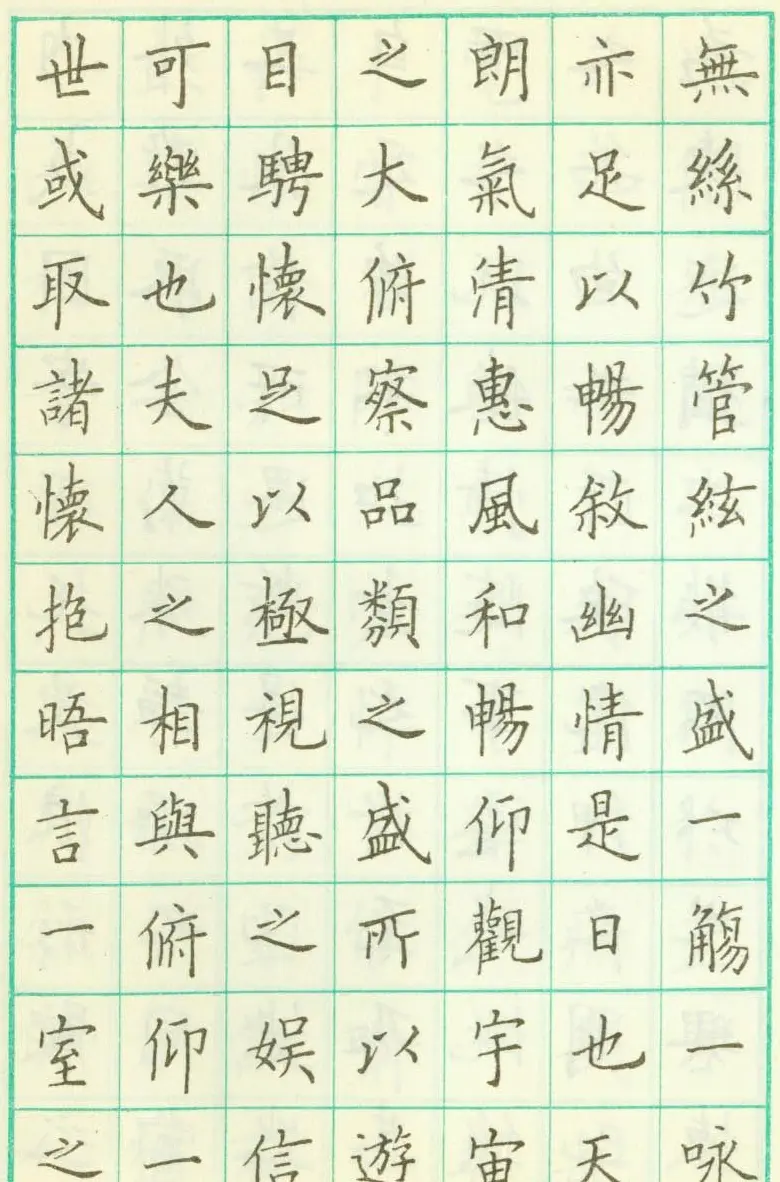 無絲竹管絃之盛一觴一咏
亦足以暢敘幽情是日也天
朗氣清惠風和暢仰觀宇宙
之大俯察品類之盛所以遊
目騁懷足以極視聽之娱信
可樂也夫人之相與俯仰一
世或取諸懷抱晤言一室之